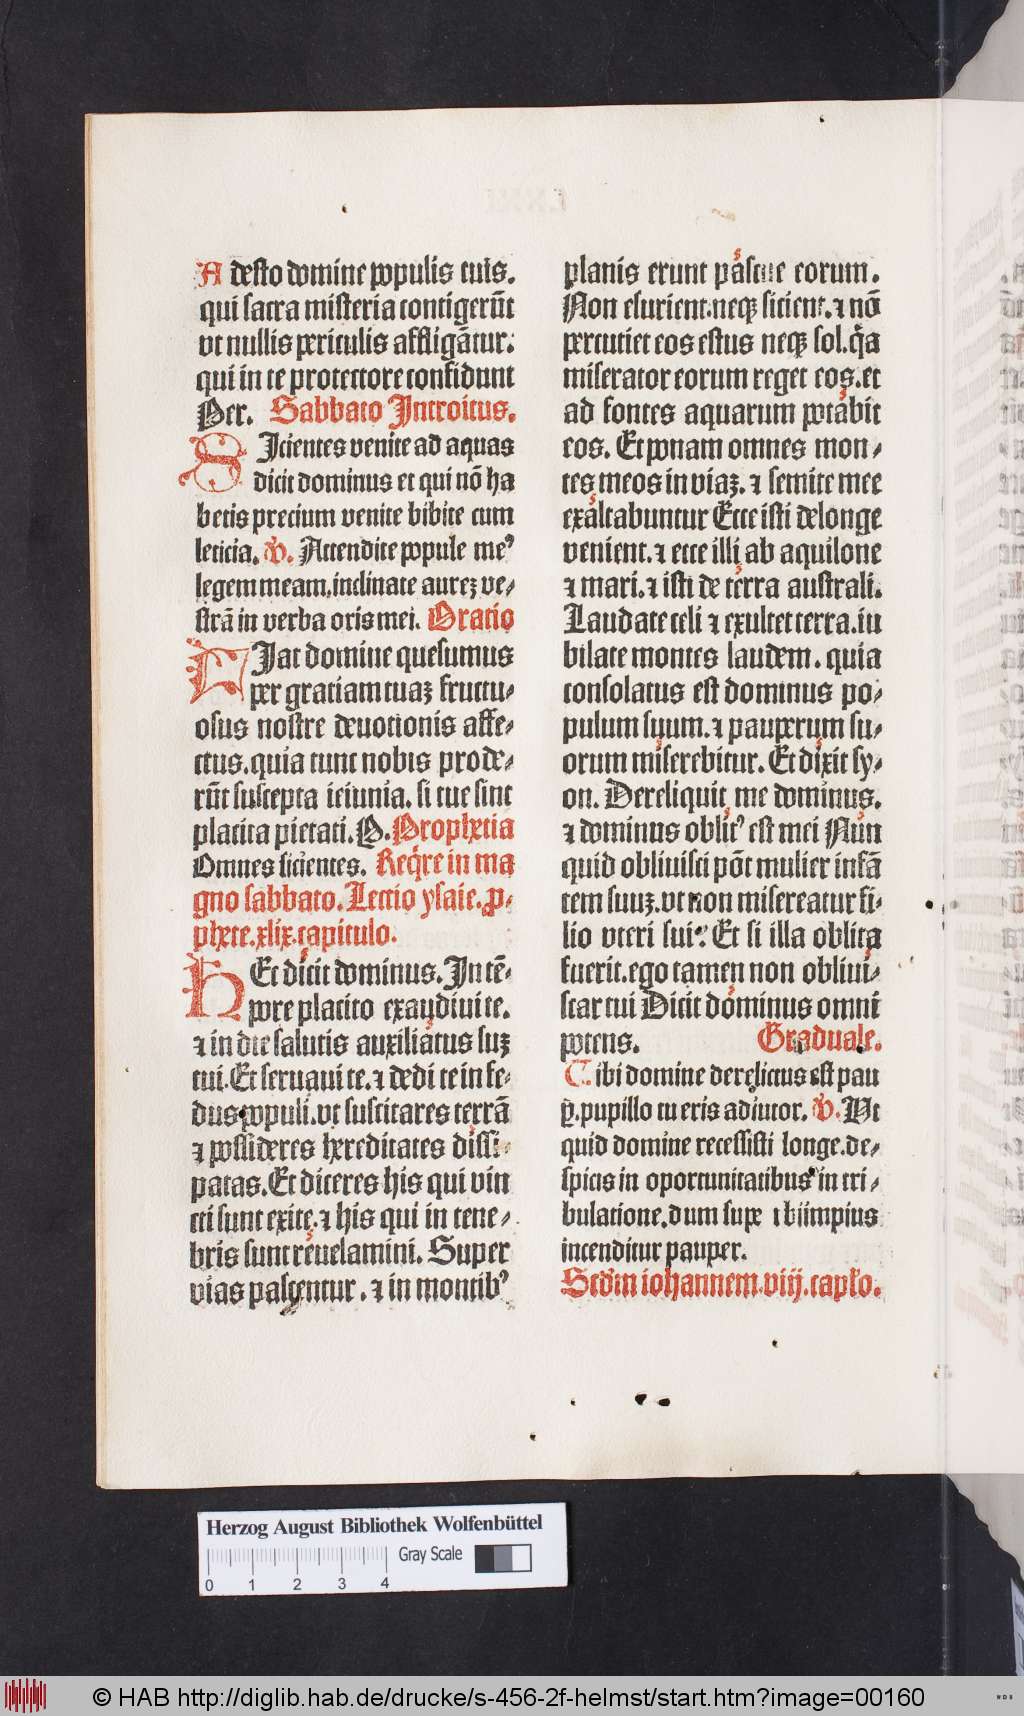 Adesto domine populis tuis.
qui sacra misteria contigerūt
vt nullis periculis affligātur:
qui in te protectore confidunt
Per. Sabbato Introitus.
SIcientes venite ad aquas
dicit dominus et qui nō ha
betis precium venite bibite cum
leticia. V. Attendite popule meꝰ
legem meam. inclinate aureꝫ ve⸗
strā in verba oris mei. Oratio
FIat domine quesumus
per gratiam tuaꝫ fructu⸗
osus nostre deuotionis affe⸗
ctus. quia tunc nobis prode⸗
rūt suscepta ieiunia. si tue sint
placita pietati. P. Prophetia
Omnes sicientes. Reqͥre in ma
gno sabbato. Lectio ysaie. ꝓ⸗
phete. xlix. capitulo.
HEc dicit dominus. In tē⸗
pore placito exaudiui te.
⁊ in die salutis auxiliatus suꝫ
tui. Et seruaui te. ⁊ dedi te in fe⸗
dus populi. vt suscitares terrā
⁊ possideres hereditates dissi⸗
patas. Et diceres his qui vin
cti sunt exite. ⁊ his qui in tene⸗
bris sunt reuelamini. Super
vias pascentur. ⁊ in montibꝰ
planis erunt pascue eorum.
Non esurient. neqꝫ sicient. ⁊ nō
percutiet eos estus neqꝫ sol. qͥa
miserator eorum reget eos. et
ad fontes aquarum potabit
eos. Et ponam omnes mon⸗
tes meos in viaꝫ. ⁊ semite mee
exaltabuntur Ecce isti de longe
venient. ⁊ ecce illi ab aquilone
⁊ mari. ⁊ isti de terra australi.
Laudate celi ⁊ exultet terra. iu
bilate montes laudem. quia
consolatus est dominus po⸗
pulum suum. ⁊ pauperum su⸗
orum miserebitur. Et dixit sy⸗
on. Dereliquit me dominus.
⁊ dominus oblitꝰ est mei Nun
quid obliuisci pōt mulier infā
tem suuꝫ. vt non misereatur fi⸗
lio vteri sui. Et si illa oblita
fuerit. ego tamen non obliui⸗
scar tui Dicit dominus omni
potens. Graduale.
Tibi domine derelictus est pau
ꝑ. pupillo tu eris adiutor. V. Vt
quid domine recessisti longe. de⸗
spicis in oportunitatibus in tri⸗
bulatione. dum supe ibi impius
incenditur pauper.
Scdm̄ iohannem. viij. capl̄o.
Herzog August Bibliothek Wolfenbüttel
Gray Scale
0 1 2 3 4
© HAB http://diglib.hab.de/drucke/s-456-2f-helmst/start.htm?image=00160